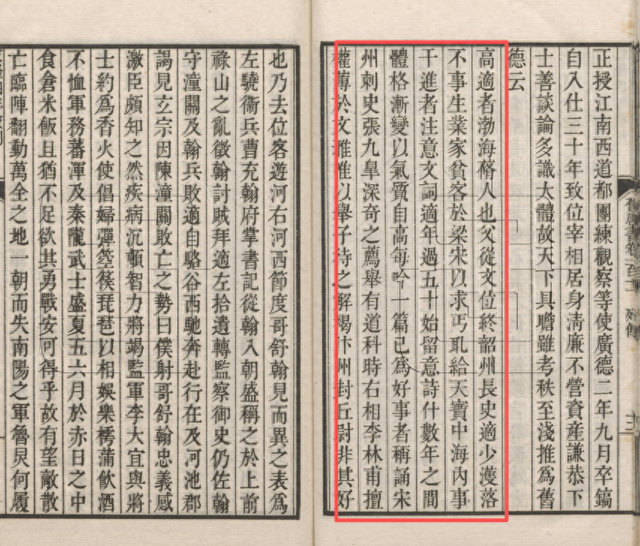 正授江南西道都團練觀察等使廣德二年九月卒鎬
自入仕三十年致位宰相居身清廉不營資産謙恭下
士善談論多識大體故天下具瞻雖考秩至淺推爲舊
德云
高適者渤海蓨人也父從文位終韶州長史適少濩落
不事生業家貧客於梁宋以求丐取給天寶中海內事
干進者注意文詞適年過五十始留意詩什數年之間
體格漸變以氣質自高每吟一篇已爲好事者稱誦宋
州刺史張九皐深奇之薦舉有道科時右相李林甫擅
權薄於文雅唯以舉子待之解褐汴州封丘尉非其好
也乃去位客遊河右河西節度哥舒翰見而異之表爲
左驍衞兵曹充翰府掌書記從翰入朝盛稱之於上前
祿山之亂徵翰討賊拜適左拾遺轉監察御史仍佐翰
守潼關及翰兵敗適自駱谷西馳奔赴行在及河池郡
謁見玄宗因陳潼關敗亡之勢曰僕射哥舒翰忠義感
激臣頗知之然疾病沉頓智力將竭監軍李大宜與將
士約爲香火使倡婦彈箜篌琵琶以相娛樂樗蒲飲酒
不恤軍務蕃渾及秦隴武士盛夏五六月於赤日之中
食倉米飯且猶不足欲其勇戰安可得乎故有望敵散
亡臨陣翻動萬全之地一朝而失南陽之軍魯炅何履